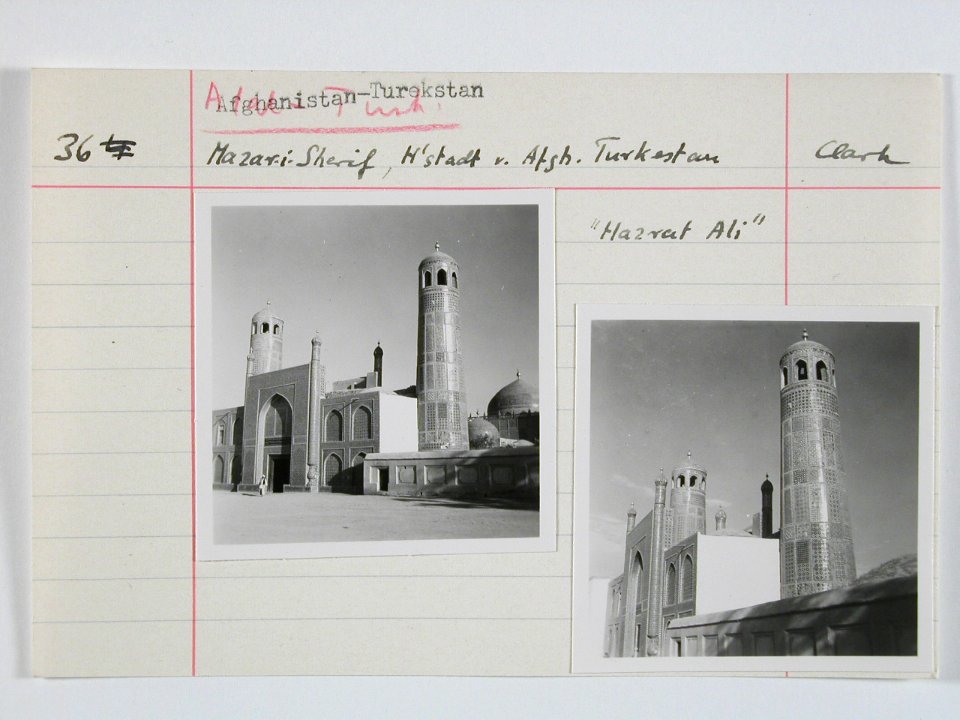 Afghanistan-Turekstan
Afgh. Turk.
36
Mazar-i-Sherif, H'stadt v. Afgh. Turkestan
Clark
"Hazrat Ali"